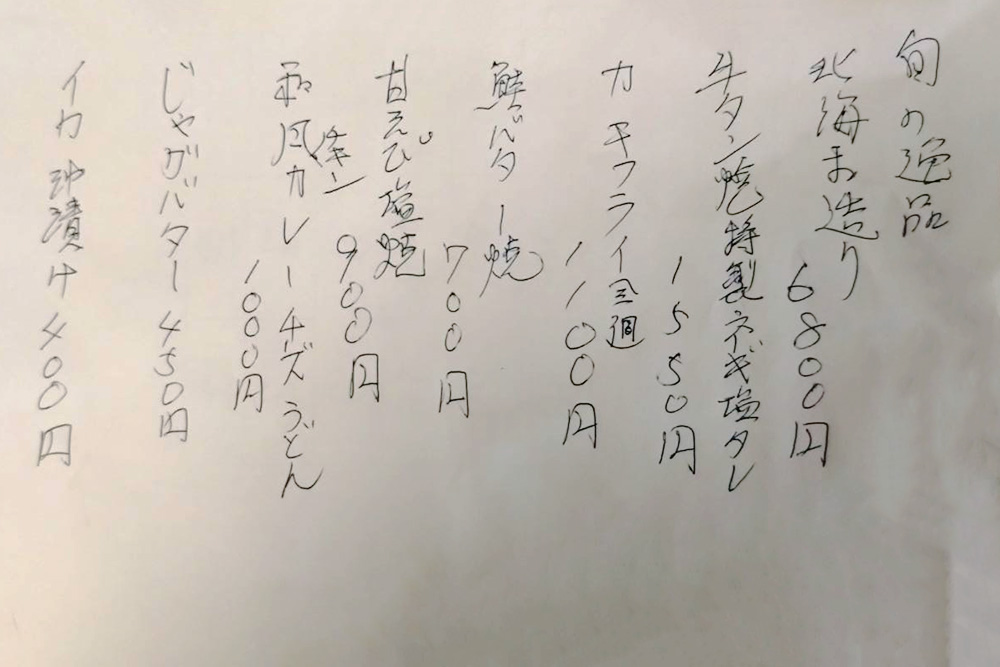 旬の逸品
北海お造り
6800円
牛タン焼特製ネギ塩タレ
1550円
カキフライ
1100円
鮭バター焼
700円
甘えび塩焼
900円
和風カレーチーズうどん
チキン
1000円
じゃがバター450円
イカ沖漬け400円